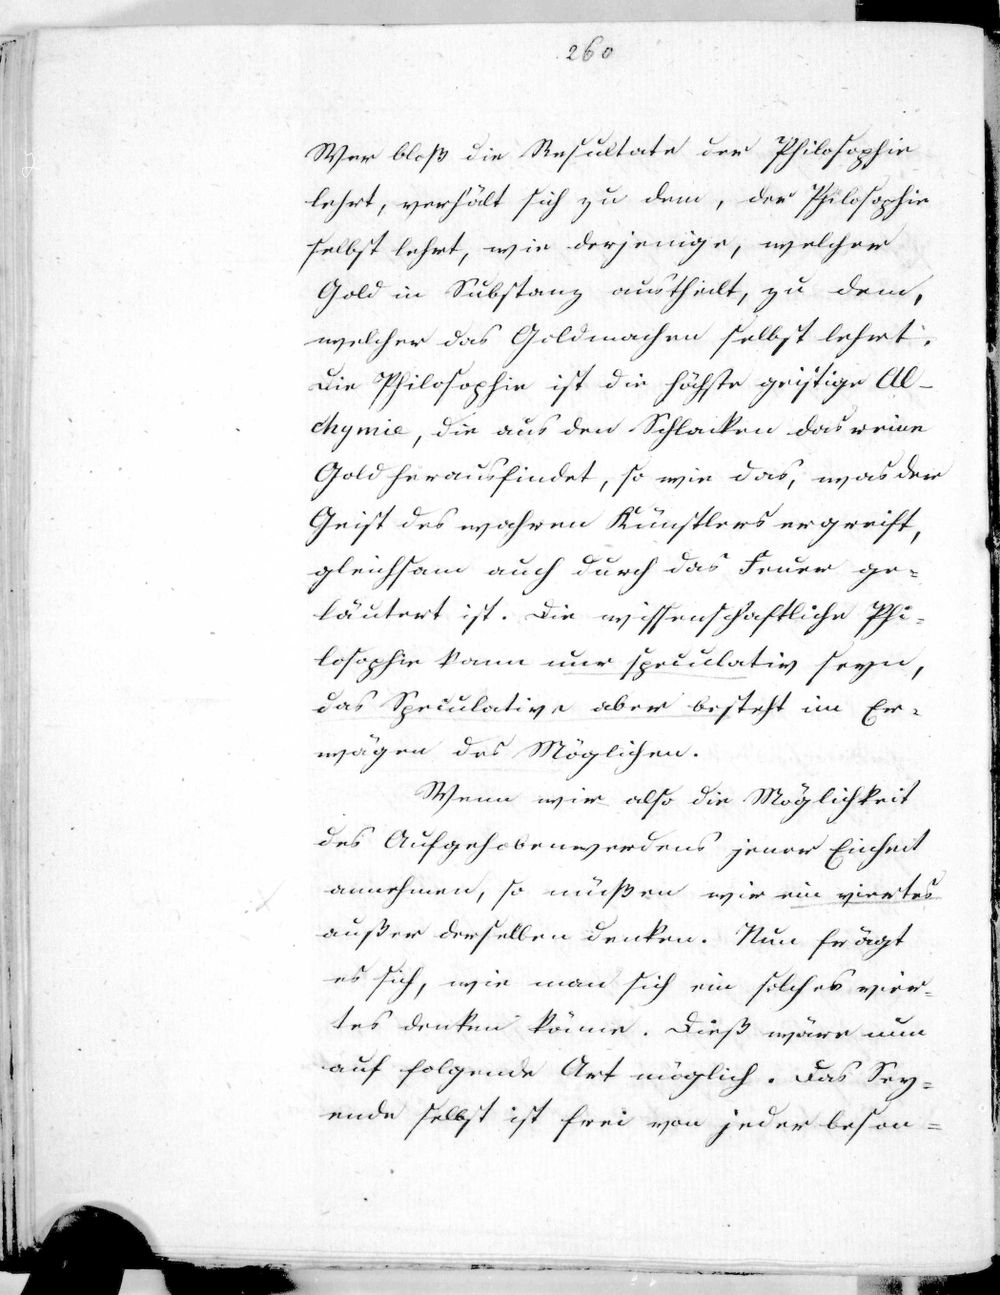 260
Wer bloß die Resultate der Philosophie
lehrt, verhält sich zu dem, der Philosophie
selbst lehrt, wie derjenige, welcher
Gold in Substanz austheilt, zu dem,
welcher das Goldmachen selbst lehrt.
Die Philosophie ist die höchste geistige Al-
chymie, die aus den Schlacken das reine
Gold herausfindet, so wie das, was der
Geist des wahren Künstlers ergreift,
gleichsam auch durch das Feuer ge=
läutert ist. Die wissenschaftliche Phi=
losophie kann nur speculativ seyn,
das Speculative aber besteht im Er=
wägen des Möglichen.
Wenn wir also die Möglichkeit
des Aufgehobenwerdens jener Einheit
annehmen, so müßen wir ein viertes
außer derselben denken. Nun frägt
es sich, wie man sich ein solches vier=
tes denken könne. Dieß wäre nun
auf folgende Art möglich. Das Sey=
ende selbst ist frei von jeder beson=